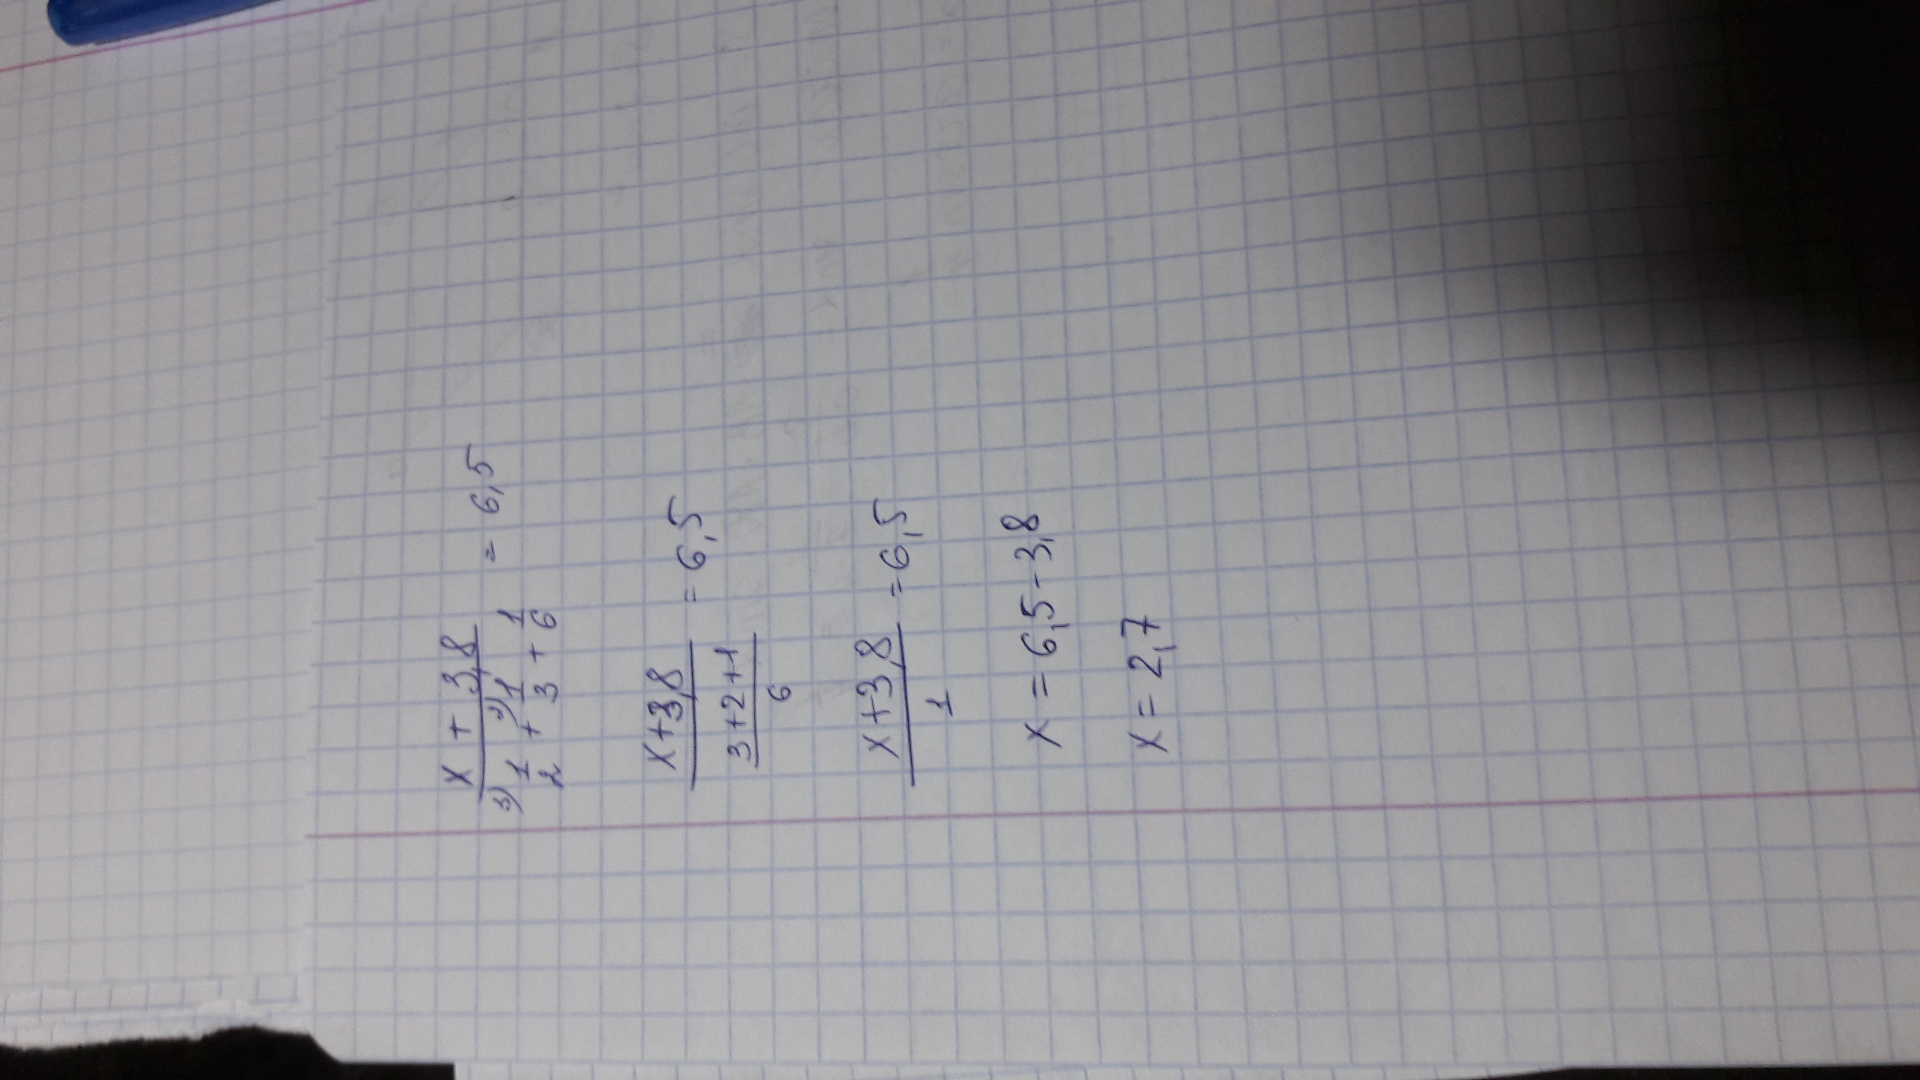 x + 3,8
3) 1 2) 1 1 = 6,5
2 + 3 + 6
x+3,8
3+2+1 = 6,5
6
x+3,8
1 = 6,5
x = 6,5 - 3,8
x = 2,7